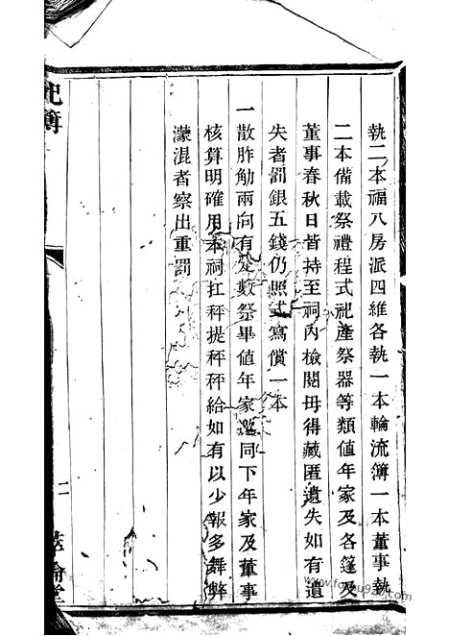 執二本福八房派四維各執一本輪流簿一本董事執
二本備載祭禮程式祀產祭器等類値年家及各篷及
董事春秋日皆持至祠內檢閱毋得藏匿遺失如有遺
失者罰銀五錢仍照式寫償一本
一散胙觔兩向有定數祭畢値年家同下年家及董事
核算明確用本祠扛秤提秤秤給如有以少報多舞弊
濛混者察出重罰
祀簿
二